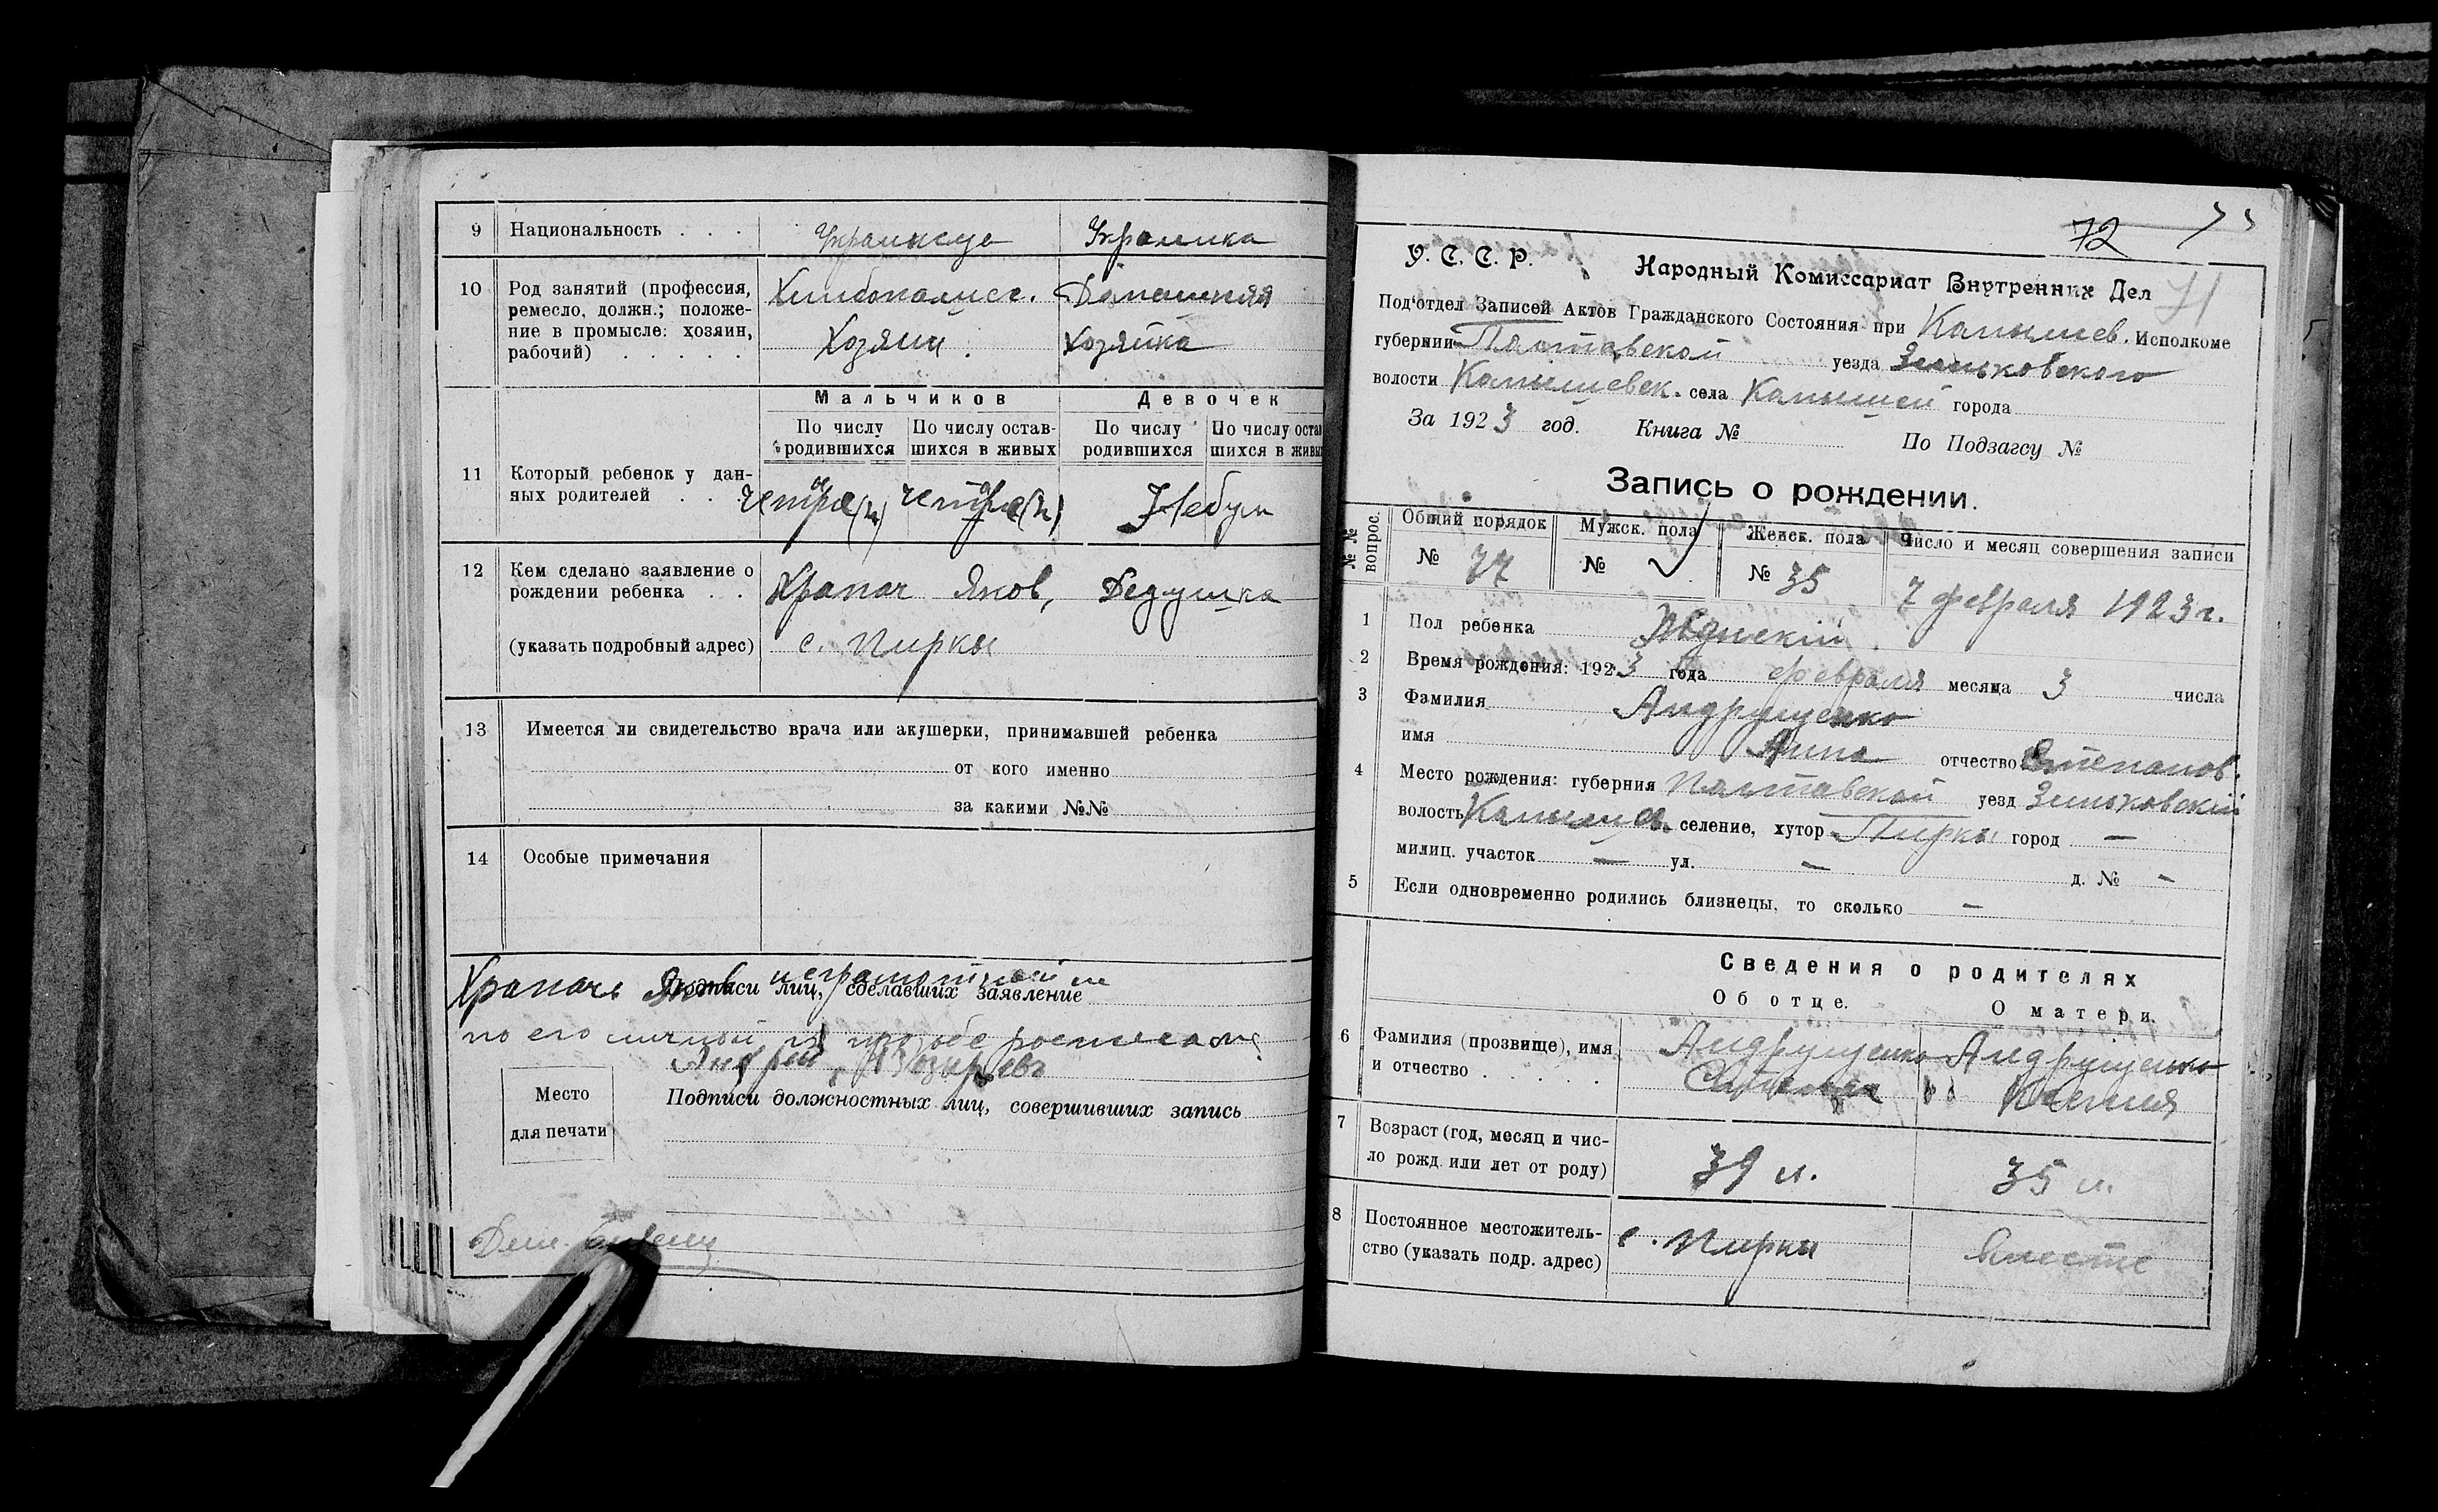 9 Национальность . . . Украинец Украинка
10 Род занятий (профессия, Хлибопашес. Домашняя
ремесло, должн.; положе-
ние в промысле: хозяин, Хозяин. Хозяйка
рабочий) . . . . .
Мальчиков Девочек
По числу По числу остав- По числу По числу остав
родившихся шихся в живых родившихся шихся в живы
11 Который ребенок у дан-
ных родителей . . .
12 Кем сделано заявление о Храпач Яков, Дедушка
рождении ребенка . .
(указать подробный адрес) с. Пирки
13 Имеется ли свидетельство врача или акушерки, принимавшей ребенка
от кого именно
за какими №№
14 Особые примечания
Храпачь Яков неграмотный и
Подписи лиц, сделавших заявление
по его личной просьбе росписался
Андрей
Место
для печати
Подписи должностных лиц, совершивших запись
72
71
У. С. С. Р. Народный Комиссариат Внутренних Дел
Под'отдел Записей Актов Гражданского Состояния при Капышев. Исполкоме
губернии Полтавской уезда Зеньковского
волости Капышевск. села Капышей города
За 1923 год. Книга № По Подзагсу №
Запись о рождении.
№ № вопрос. Общий порядок Мужск. пола Женск. пола Число и месяц совершения записи
№ 77 № № 35 7 февраля 1923 г.
1 Пол ребенка Женский
2 Время рождения: 1923 года февраля месяца 3 числа
3 Фамилия Андрущенко
имя Анна отчество Степанов.
4 Место рождения: губерния Полтавской уезд Зиньковский
волость селение, хутор Пирки город —
милиц. участок — ул. — д. № -
5 Если одновременно родились близнецы, то сколько —
Сведения о родителях
Об отце. О матери.
6 Фамилия (прозвище), имя Андрущенко Андрущенко
и отчество . . . . Степан Ксения
7 Возраст (год, месяц и чис-
ло рожд. или лет от роду) 39 л. 35 л.
8 Постоянное местожитель- с. Пирки Вместе
ство (указать подр. адрес)